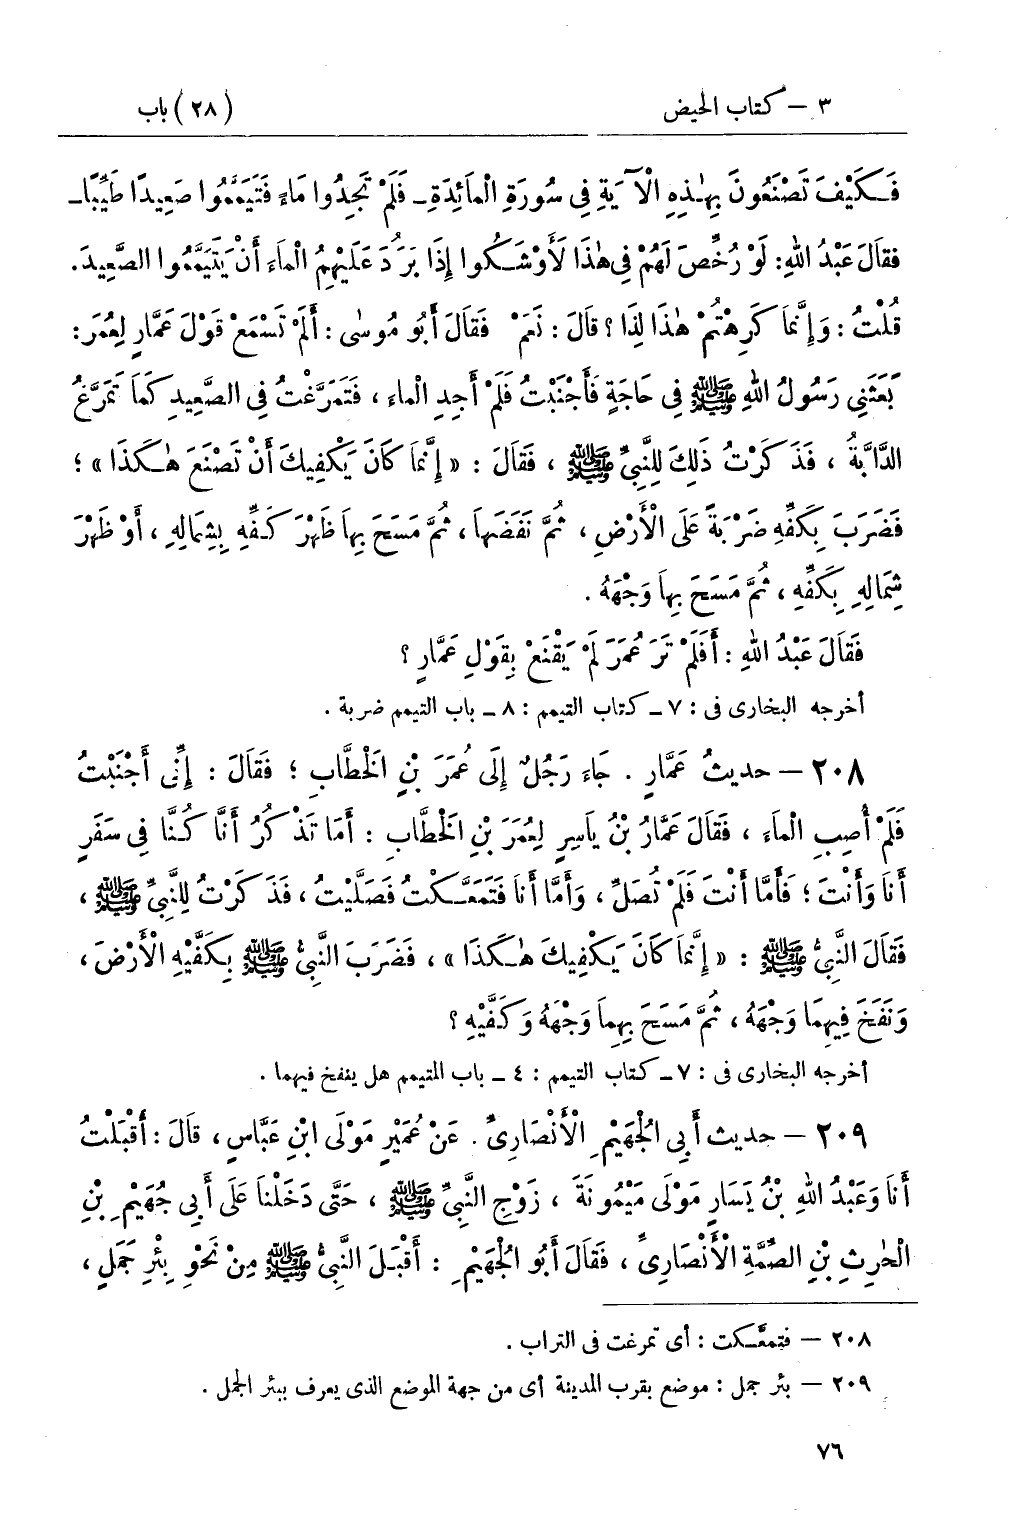 ٣ – كتاب الحيض (٢٨) باب
فَكَيْفَ تَصْنَعُونَ بِهٰذِهِ الْآيَةِ فِى سُورَةِ الْمَائِدَةِ ـ فَلَمْ تَجِدُوا مَاءً فَتَيَمَّمُوا صَعِيدًا طَيِّبًا ـ
فقَالَ عَبْدُ اللهِ: لَوْ رُخِّصَ لَهُمْ فِى هٰذَا لَأَوْشَكُوا إِذَا بَرُدَ عَلَيْهِمُ الْمَاءُ أَنْ يَتَيَمَّمُوا الصَّعِيدَ.
قُلْتُ: وَإِنَّمَا كَرِهْتُمْ هٰذَا لِذَا؟ قَالَ: نَعَمْ فَقَالَ أَبُو مُوسٰى: أَلَمْ تَسْمَعْ قَوْلَ عَمَّارٍ لِعُمَرَ:
بَعَثَنِى رَسُولُ اللهِ ﷺ فِى حَاجَةٍ فَأَجْنَبْتُ فَلَمْ أَجِدِ الْمَاءَ، فَتَمَرَّغْتُ فِى الصَّعِيدِ كَمَا تَمَرَّغُ
الدَّابَّةُ، فَذَكَرْتُ ذَلِكَ لِلنَّبِىِّ ﷺ، فَقَالَ: «إِنَّمَا كَانَ يَكْفِيكَ أَنْ تَصْنَعَ هٰكَذَا»؛
فَضَرَبَ بِكَفِّهِ ضَرْبَةً عَلَى الْأَرْضِ، ثُمَّ نَفَضَهَا، ثُمَّ مَسَحَ بِهَا ظَهْرَ كَفِّهِ بِشِمَالِهِ، أَوْ ظَهْرَ
شِمَالِهِ بِكَفِّهِ، ثُمَّ مَسَحَ بِهَا وَجْهَهُ.
فَقَالَ عَبْدُ اللهِ: أَفَلَمْ تَرَ عُمَرَ لَمْ يَقْنَعْ بِقَوْلِ عَمَّارٍ؟
أخرجه البخارى فى: ٧ ـ كتاب التيمم: ٨ ـ باب التيمم ضربة.
٢٠٨ – حديثُ عَمَّارٍ. جَاءَ رَجُلٌ إِلَى عُمَرَ بْنِ الْخَطَّابِ؛ فَقَالَ: إِنِّى أَجْنَبْتُ
فَلَمْ أُصِبِ الْمَاءَ، فَقَالَ عَمَّارُ بْنُ يَاسِرٍ لِعُمَرَ بْنِ الْخَطَّابِ: أَمَا تَذْكُرُ أَنَّا كُنَّا فِى سَفَرٍ
أَنَا وَأَنْتَ؛ فَأَمَّا أَنْتَ فَلَمْ تُصَلِّ، وَأَمَّا أَنَا فَتَمَعَّكْتُ فَصَلَّيْتُ، فَذَكَرْتُ لِلنَّبِىِّ ﷺ،
فَقَالَ النَّبِىُّ ﷺ: «إِنَّمَا كَانَ يَكْفِيكَ هٰكَذَا»، فَضَرَبَ النَّبِىُّ ﷺ بِكَفَّيْهِ الْأَرْضَ،
وَنَفَخَ فِيهِمَا وَجْهَهُ، ثُمَّ مَسَحَ بِهِمَا وَجْهَهُ وَكَفَّيْهِ؟
أخرجه البخارى فى: ٧ ـ كتاب التيمم: ٤ ـ باب المتيمم هل ينفخ فيهما.
٢٠٩ – حديث أَبِى الْجُهَيْمِ الْأَنْصَارِىِّ. عَنْ عُمَيْرٍ مَوْلَى ابْنِ عَبَّاسٍ، قَالَ: أَقْبَلْتُ
أَنَا وَعَبْدُ اللهِ بْنُ يَسَارٍ مَوْلَى مَيْمُونَةَ، زَوْجِ النَّبِىِّ ﷺ، حَتَّى دَخَلْنَا عَلَى أَبِى جُهَيْمِ بْنِ
الْحٰرِثِ بْنِ الصِّمَّةِ الْأَنْصَارِىِّ، فَقَالَ أَبُو الْجُهَيْمِ: أَقْبَلَ النَّبِىُّ ﷺ مِنْ نَحْوِ بِئْرِ جَمَلٍ،
٢٠٨ – فتمعَّكت: أى تمرغت فى التراب.
٢٠٩ – بئر جمل: موضع بقرب المدينة أى من جهة الموضع الذى يعرف ببئر الجمل.
٧٦